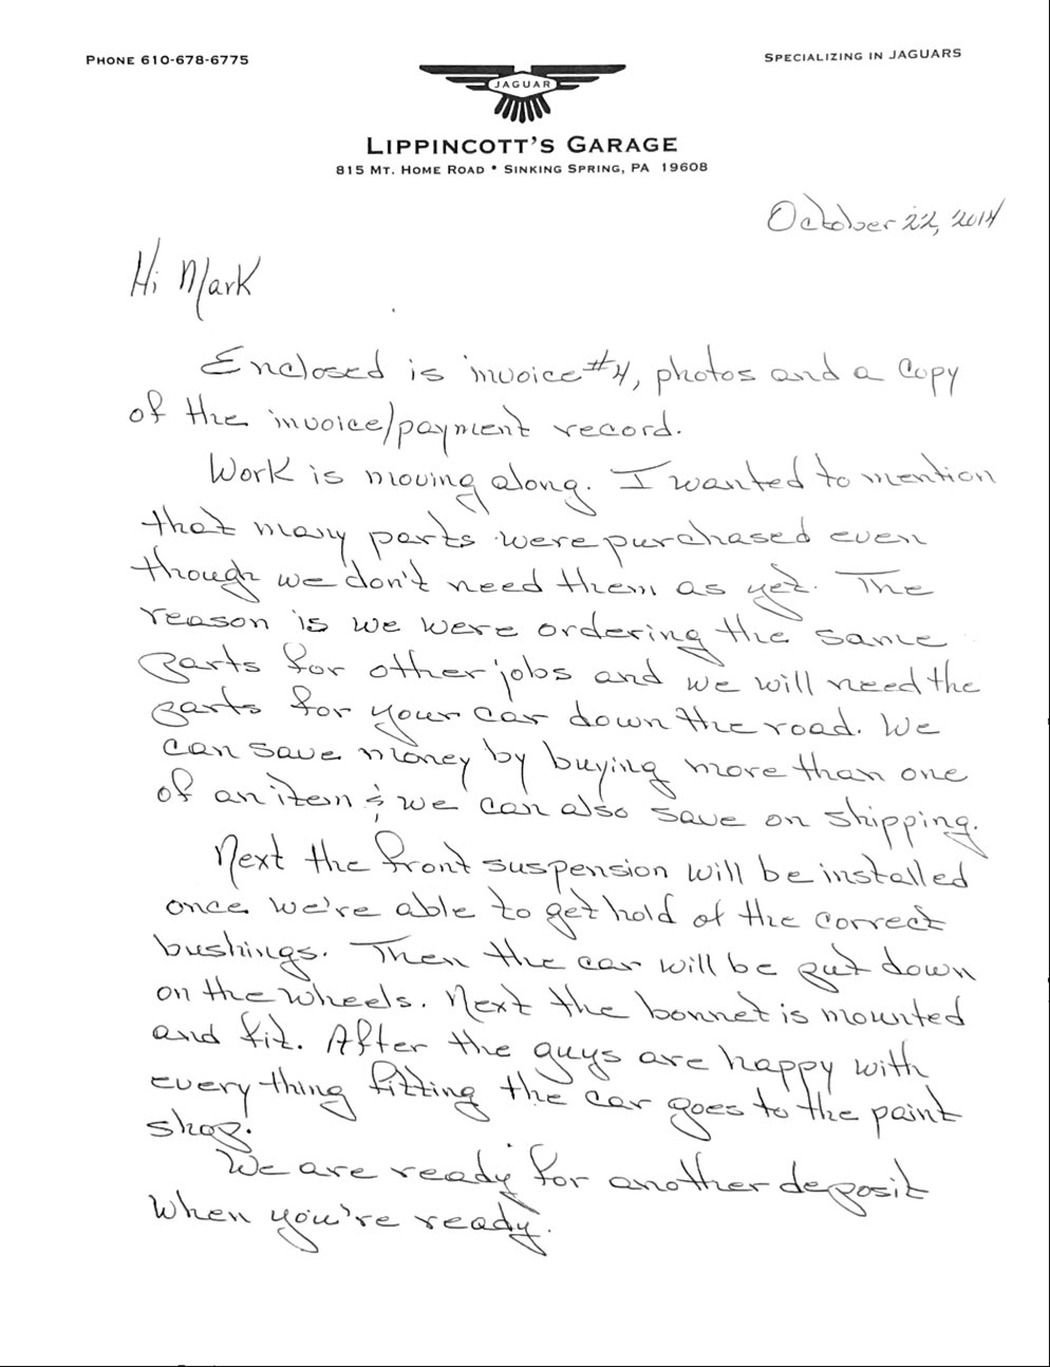 PHONE 610-678-6775
SPECIALIZING IN JAGUARS
JAGUAR
LIPPINCOTT'S GARAGE
815 MT. HOME ROAD • SINKING SPRING, PA 19608
October 22, 2014
Hi Mark
Enclosed is invoice #4, photos and a copy
of the invoice/payment record.
Work is moving along. I wanted to mention
that many parts were purchased even
though we don't need them as yet. The
reason is we were ordering the same
parts for other jobs and we will need the
parts for your car down the road. We
can save money by buying more than one
of an item & we can also save on shipping.
Next the front suspension will be installed
once we're able to get hold of the correct
bushings. Then the car will be put down
on the wheels. Next the bonnet is mounted
and fit. After the guys are happy with
everything fitting the car goes to the paint
shop.
We are ready for another deposit
when you're ready.